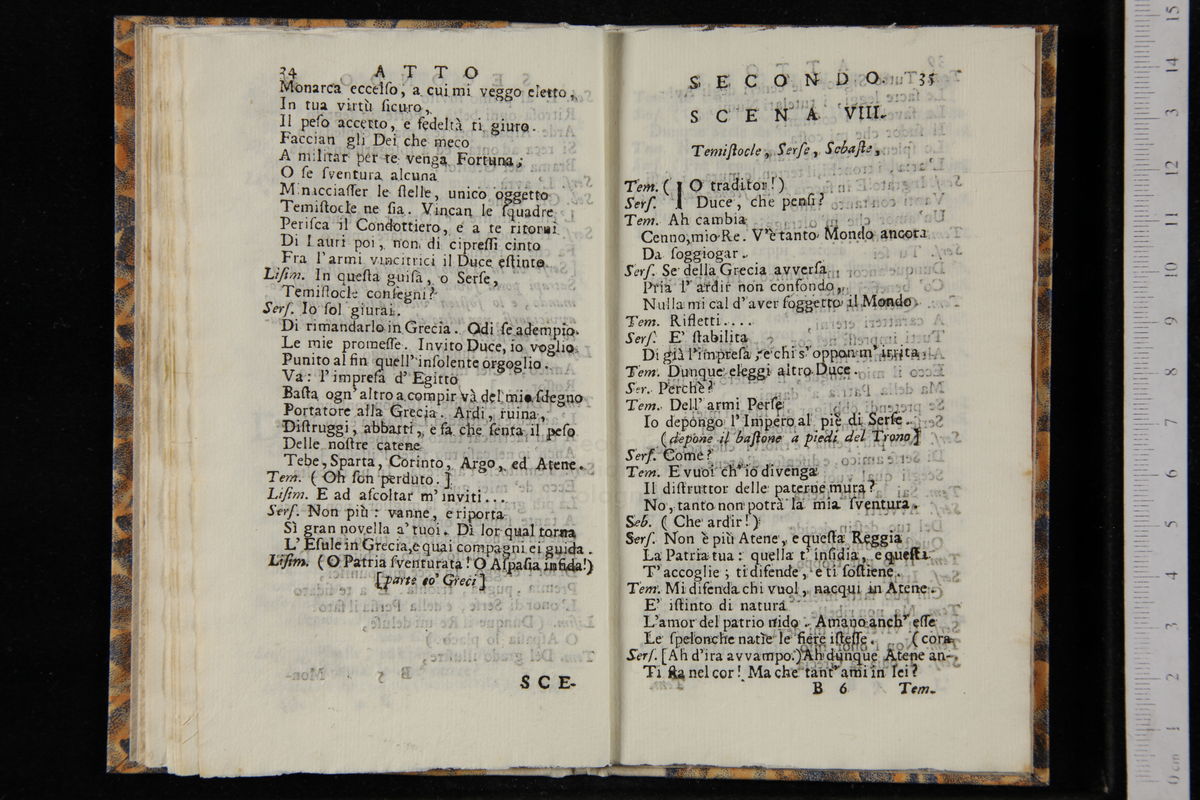 34 ATTO
Monarca eccelſo, a cui mi veggo eletto,
In tua virtù ſicuro,
Il peſo accetto, e fedeltà ti giuro.
Faccian gli Dei che meco
A militar per te venga Fortuna;
O ſe ſventura alcuna
Minacciaſſer le ſtelle, unico oggetto
Temiſtocle ne ſia. Vincan le ſquadre
Periſca il Condottiero, e a te ritorni
Di Lauri poi, non di cipreſſi cinto
Fra l'armi vincitrici il Duce eſtinto.
Liſim. In queſta guiſa, o Serſe,
Temiſtocle conſegni?
Serſ. Io ſol giurai.
Di rimandarlo in Grecia. Odi ſe adempio
Le mie promeſſe. Invito Duce, io voglio
Punito al fin quell' inſolente orgoglio.
Va: l'impreſa d'Egitto
Baſta ogn'altro a compir và del mio ſdegno
Portatore alla Grecia. Ardi, ruina,
Diſtruggi, abbatti, e fa che ſenta il peſo
Delle noſtre catene
Tebe, Sparta, Corinto, Argo, ed Atene.
Tem. (Oh ſon perduto.]
Liſim. E ad aſcoltar m'inviti...
Serſ. Non più: vanne, e riporta
Sì gran novella a' tuoi. Di lor qual torna
L'Eſule in Grecia, e quai compagni ei guida.
Liſim. (O Patria ſventurata! O Aſpaſia infida!)
[parte co' Greci]
SCE-
SECONDO. 35
SCENA VIII.
Temiſtocle, Serſe, Sebaſte,
Tem. (IO traditor!)
Serſ. Duce, che penſi?
Tem. Ah cambia
Cenno, mio Re. V'è tanto Mondo ancora
Da ſoggiogar.
Serſ. Se della Grecia avverſa
Pria l'ardir non confondo,
Nulla mi cal d'aver ſoggetto il Mondo.
Tem. Rifletti....
Serſ. E' ſtabilita
Di già l'impreſa, e chi s'oppon m'irrita.
Tem. Dunque eleggi altro Duce.
Ser. Perchè?
Tem. Dell'armi Perſe
Io depongo l'Impero al piè di Serſe.
(depone il baſtone a piedi del Trono]
Serſ. Come?
Tem. E vuoi ch'io divenga
Il diſtruttor delle paterne mura?
No, tanto non potrà la mia ſventura.
Seb. (Che ardir!)
Serſ. Non è più Atene, e queſta Reggia
La Patria tua: quella t'inſidia, e queſta
T'accoglie; ti difende, e ti ſoſtiene.
Tem. Mi difenda chi vuol, nacqui in Atene.
E' iſtinto di natura
L'amor del patrio nido. Amano anch'eſſe
Le ſpelonche natìe le fiere iſteſſe. (cora
Serſ. [Ah d'ira avvampo.) Ah dunque Atene an-
Ti ſta nel cor! Ma che tant'ami in lei?
B 6 Tem.